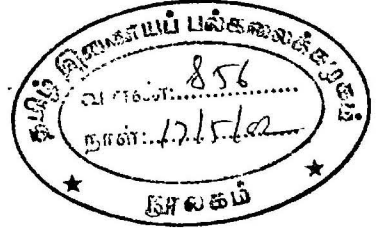 தமிழ் இணையப் பல்கலைக்கழகம்
வ எண்:..........856
நாள்:..17/5/02
நூலகம்